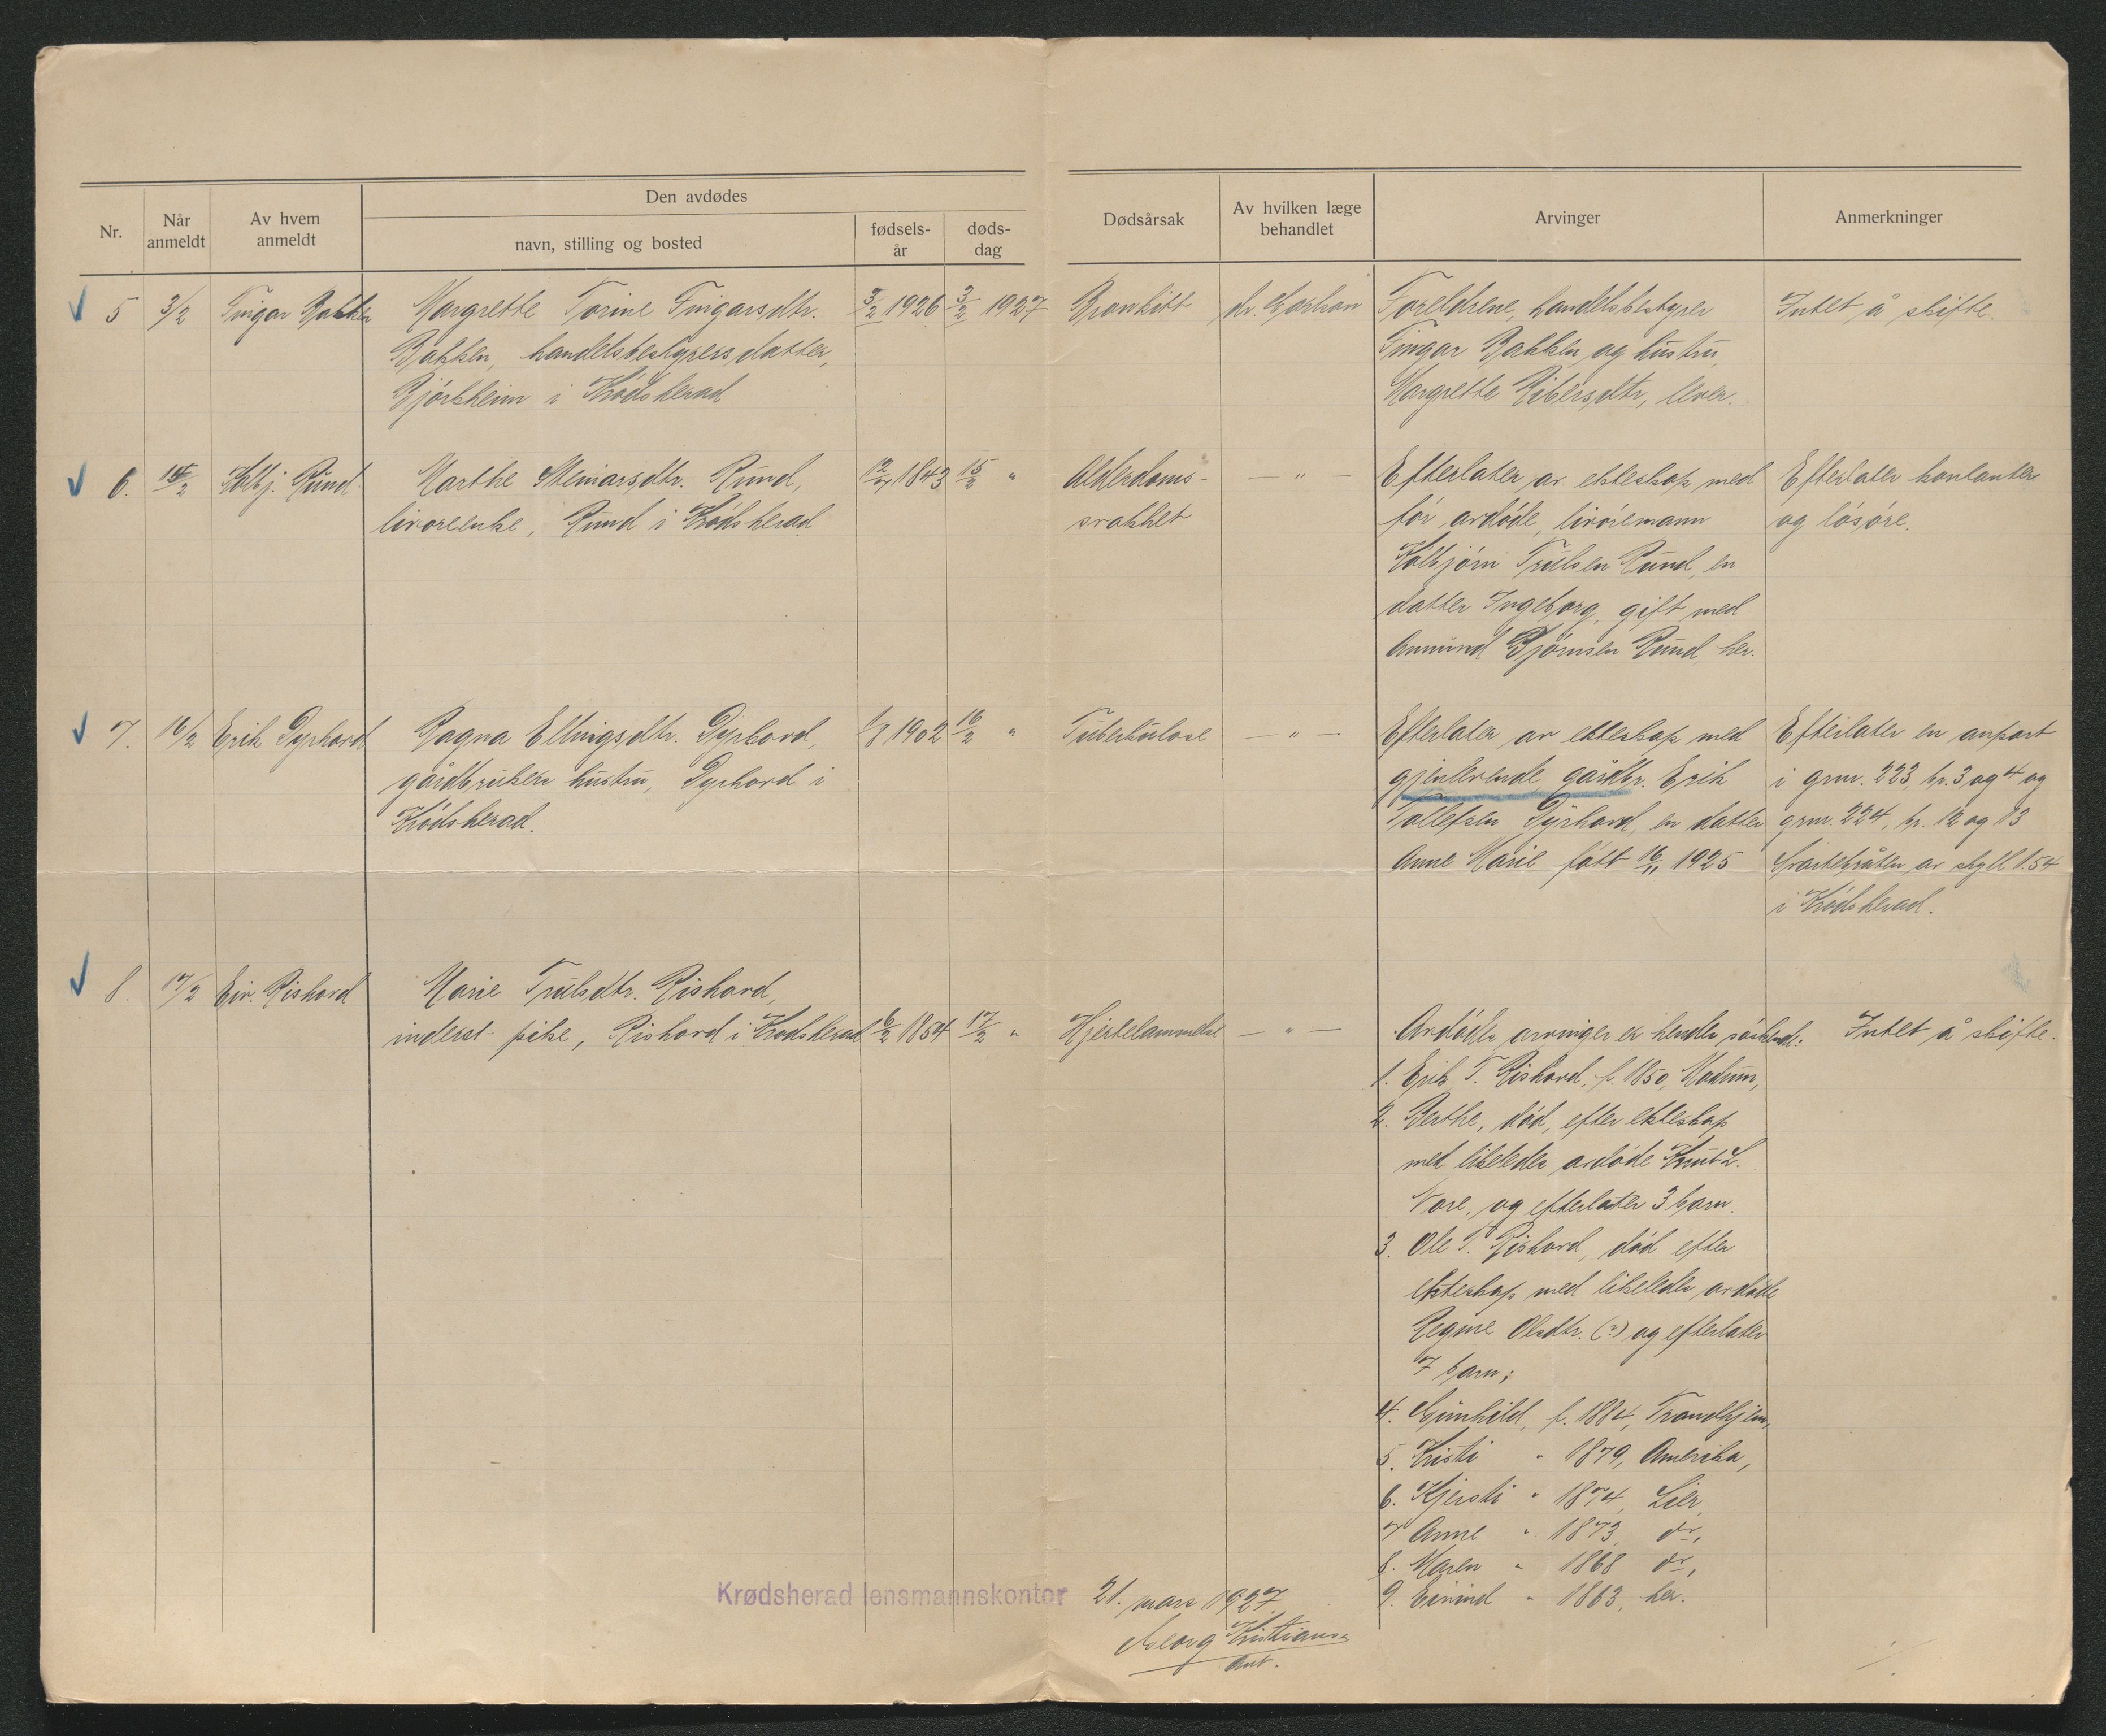 Den avdødes
Nr.
Når anmeldt
Av hvem anmeldt
navn, stilling og bosted
fødsels-år
døds-dag
Dødsårsak
Av hvilken læge behandlet
Arvinger
Anmerkninger
5 3/2 Fingar Bakken Margrethe Torine Fingarsdtr. 3/2 1926 3/2 1927 Bronkitt dr. Foreldrene, handelsbestyrer Intet å skifte.
Bakken, handelsbestyrers datter, Fingar Bakken og hustru
Bjørkheim i Krødsherad Margrethe Eibersdtr, lever.
6. 15/2 Kolbj. Rund Marthe Steinarsdtr. Rund, 12/4 1843 15/2 " Alderdoms- — " — Efterlater av ekteskap med Efterlater kontanter
livøreenke, Rund i Krødsherad svakhet før avdøde, livøremann og løsøre.
Kolbjørn Trulsen Rund, en
datter Ingeborg, gift med
Amund Bjørnsen Rund, her.
7. 16/2 Erik Dyrhovd Ragna Ellingsdtr. Dyrhovd, 1/8 1902 16/2 " Tuberkulose — " — Efterlater av ekteskap med Efterlater en anpart
gårdbrukers hustru, Dyrhovd i gjenlevende gårdbr. Erik i grnr. 223, br. 3 og 4 og
Krødsherad. Tollefsen Dyrhovd, en datter grnr. 224, br. 12 og 13
Anne Marie født 16/11 1925 Svartebråten av skyll 1.54
i Krødsherad.
8. 17/2 Eiv. Rishovd Marie Trulsdtr. Rishovd,
inderst-pike, Rishovd i Krødsherad 6/2 1854 17/2 " Hjertelammelse — " — Avdødes arvinger er hendes søskend: Intet å skifte.
1. Erik T. Rishovd, f. 1850, Modum,
2. Berthe, død, efter ekteskap
med likeledes avdøde Knut L.
Vore, og efterlater 3 barn.
3. Ole T. Rishovd, død efter
ekteskap med likeledes avdøde
Regine Olsdtr. (?) og efterlater
7 barn;
4. Gunhild, f. 1884, Trondhjem,
5. Kristi " 1879, Amerika,
6. Kjersti " 1874, Lier,
7 Anne " 1873, do,
8. Maren " 1868 do,
9. Eivind " 1863, her.
Krødsherad lensmannskontor 21. mars 1927.
Georg Kristiansen